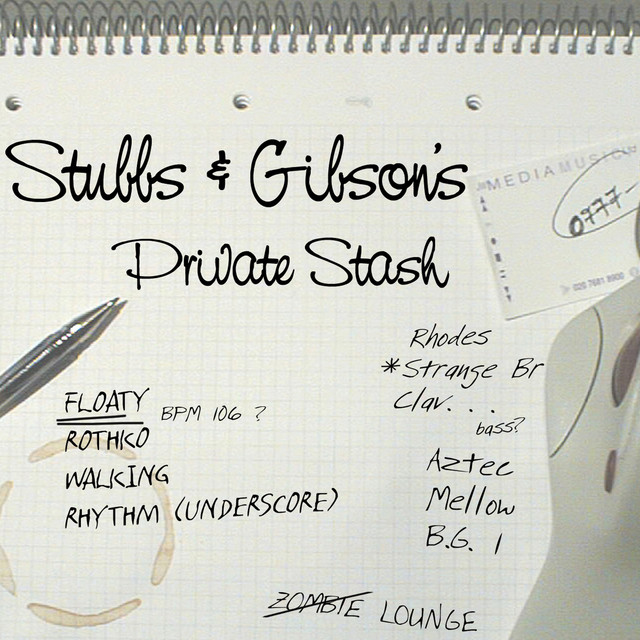 Stubbs & Gibson's
Private Stash
MEDIAMUSIC
0777-
020 7681 8900
Rhodes
*Strange Br
Clav. . .
bass?
FLOATY BPM 106 ?
ROTHKO
WALKING
RHYTHM (UNDERSCORE)
Aztec
Mellow
B.G. 1
ZOMBIE LOUNGE